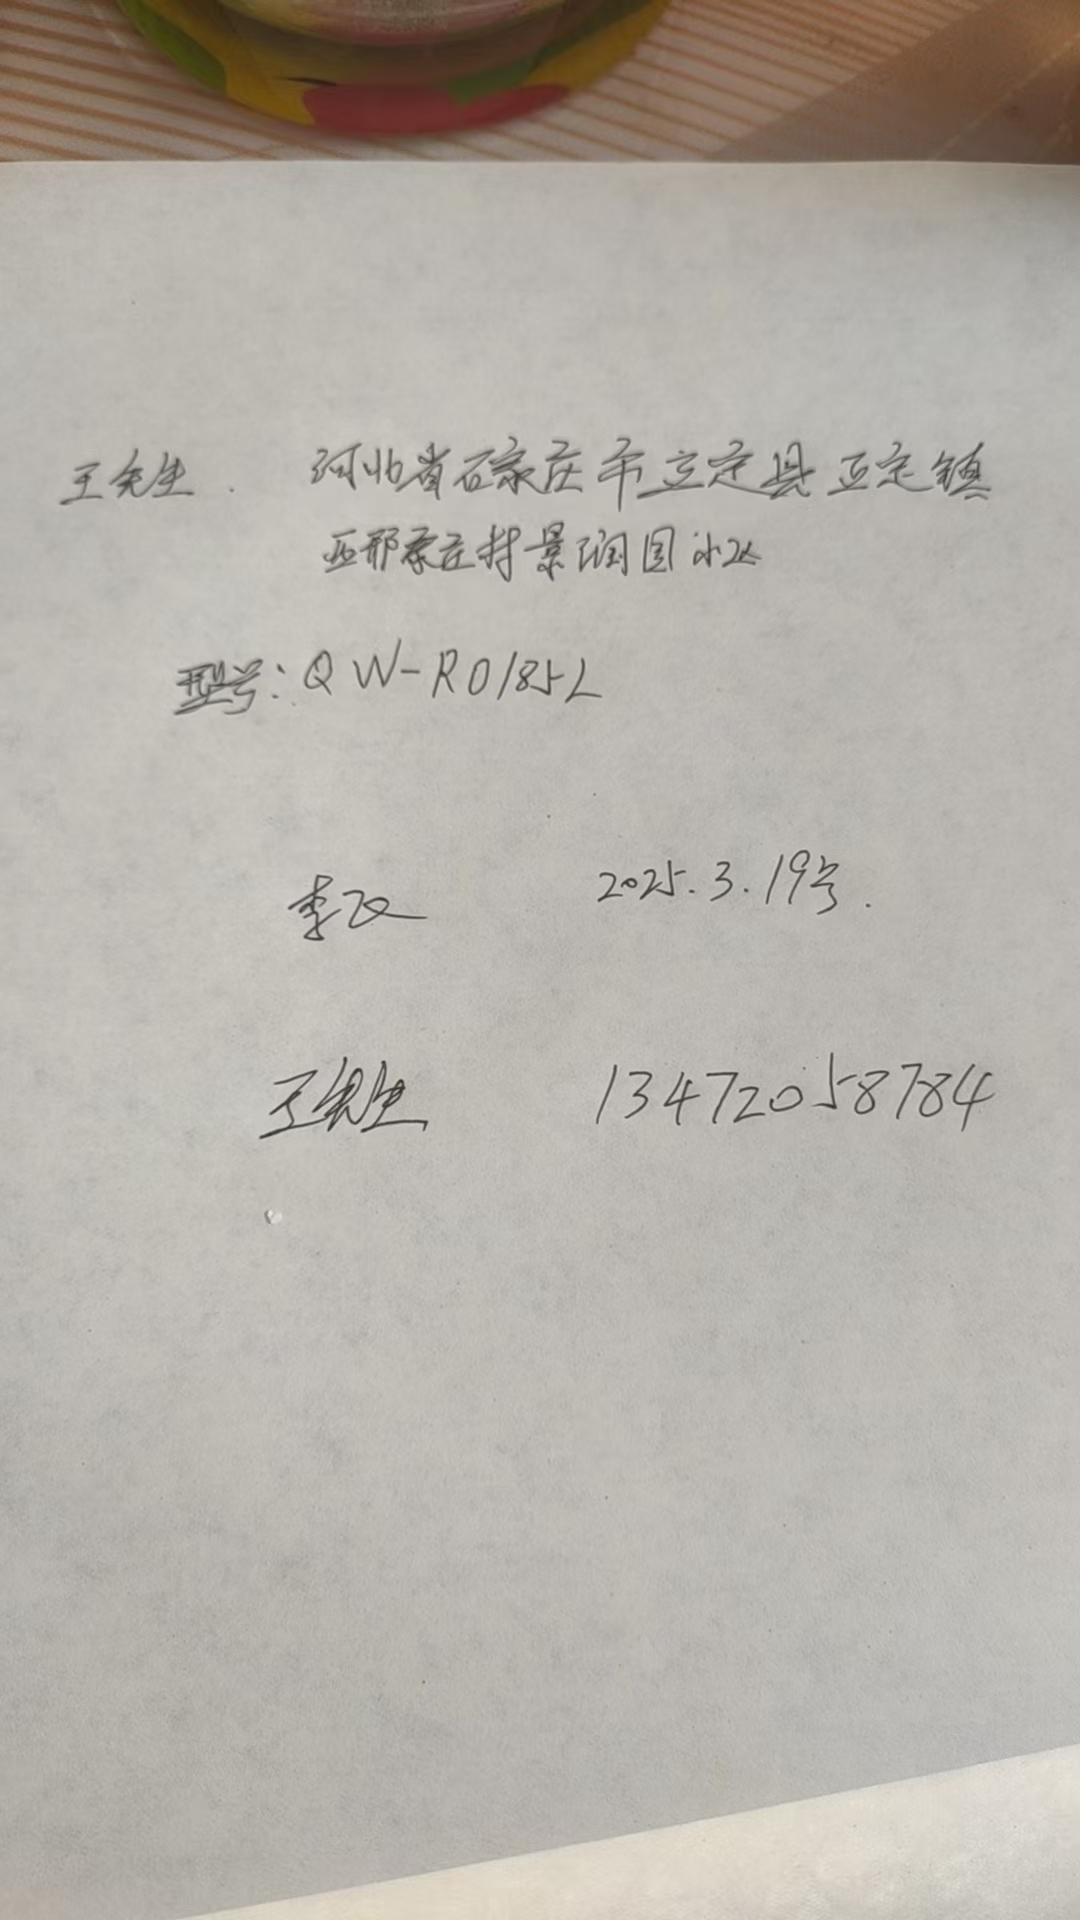 王先生. 河北省石家庄市正定县正定镇
西邢家庄村景润园小区
型号:QW-R0185L
李政 2025.3.19号.
王先生 13472058784